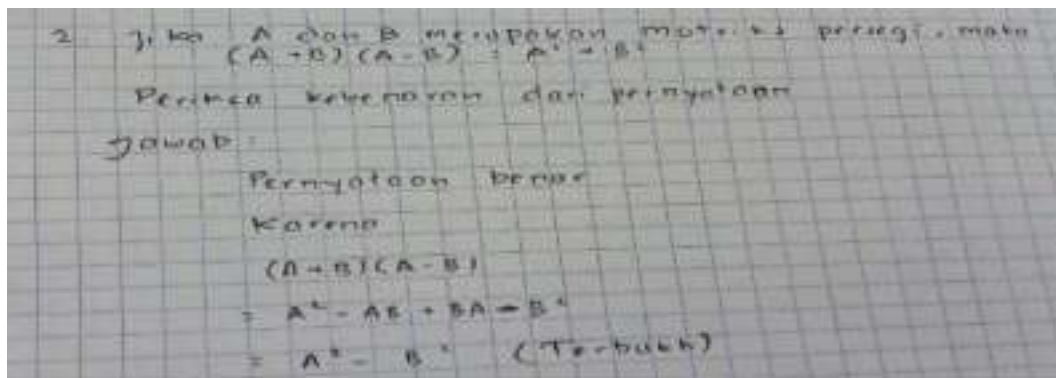 2. Jika A dan B merupakan matriks persegi, maka
(A + B) (A - B) = A² - B²
Periksa kebenaran dari pernyataan
Jawab :
Pernyataan benar
Karena
(A + B) (A - B)
= A² - AB + BA - B²
= A² - B² (Terbukti)